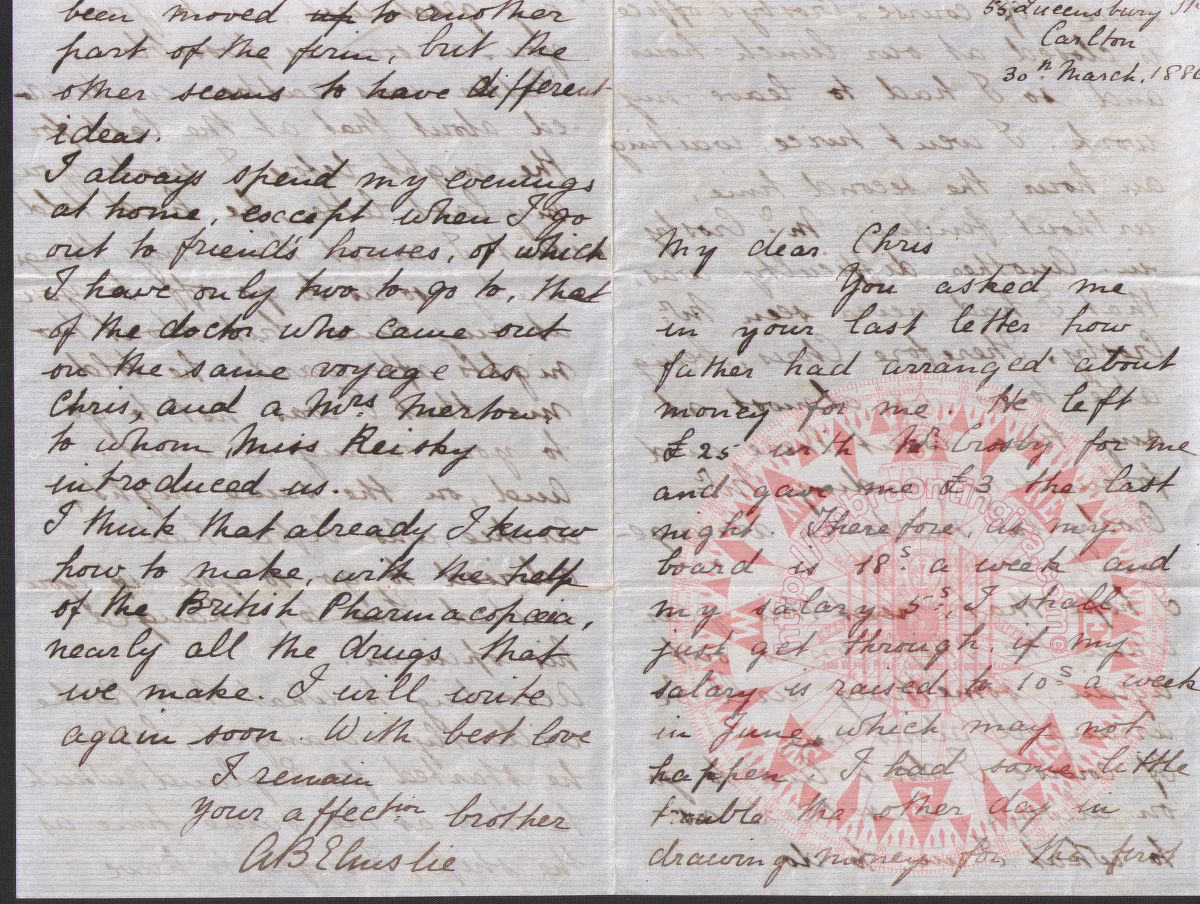 been moved up to another
part of the firm, but the
other seems to have different
ideas.
I always spend my evenings
at home, except when I go
out to friend's houses, of which
I have only two to go to, that
of the doctor who came out
on the same voyage as
Chris, and a Mrs Mertow,
to whom Miss Reisky
introduced us.
I think that already I know
how to make, with the help
of the British Pharmacopœia,
nearly all the drugs that
we make. I will write
again soon. With best love
I remain
Your affectⁱᵒⁿ brother
A B Elmslie
55 Queensbury St
Carlton
30th March, 188
My dear Chris
You asked me
in your last letter how
father had arranged about
money for me. He left
£25 with Mr Crosby for me
and gave me £3 the last
night. Therefore, as my
board is 18s a week and
my salary 5s, I shall
just get through, if my
salary is raised to 10s a week
in June, which may not
happen. I had some little
trouble the other day in
drawing money for the first